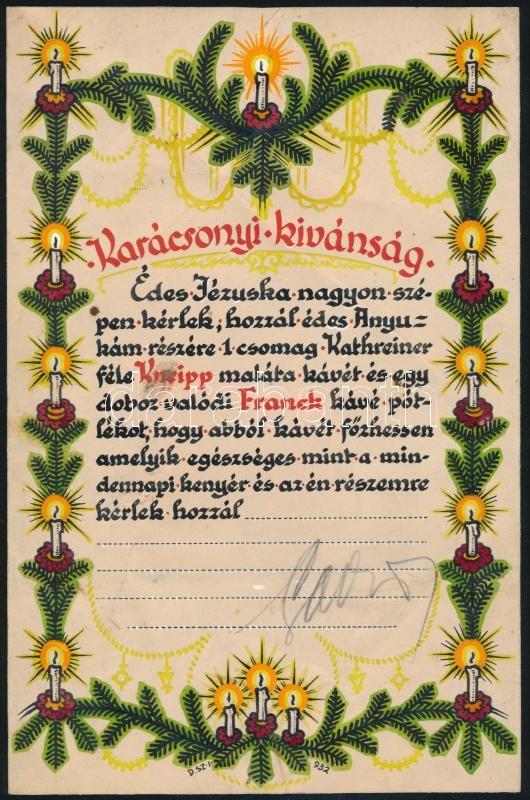 ·Karácsonyi·kivánság·
Édes·Jézuska·nagyon·szé-
pen·kérlek, hozzál·édes·Anyu-
kám·részére·1·csomag·Kathreiner
féle Kneipp maláta·kávét·és·egy
doboz·valódi Franck kávé·pót-
lékot, hogy·abból·kávét·főzhessen
amelyik·egészséges·mint·a·min-
dennapi·kenyér·és·az·én·részemre
kérlek·hozzál
D.SZ.I. 932
darabanth